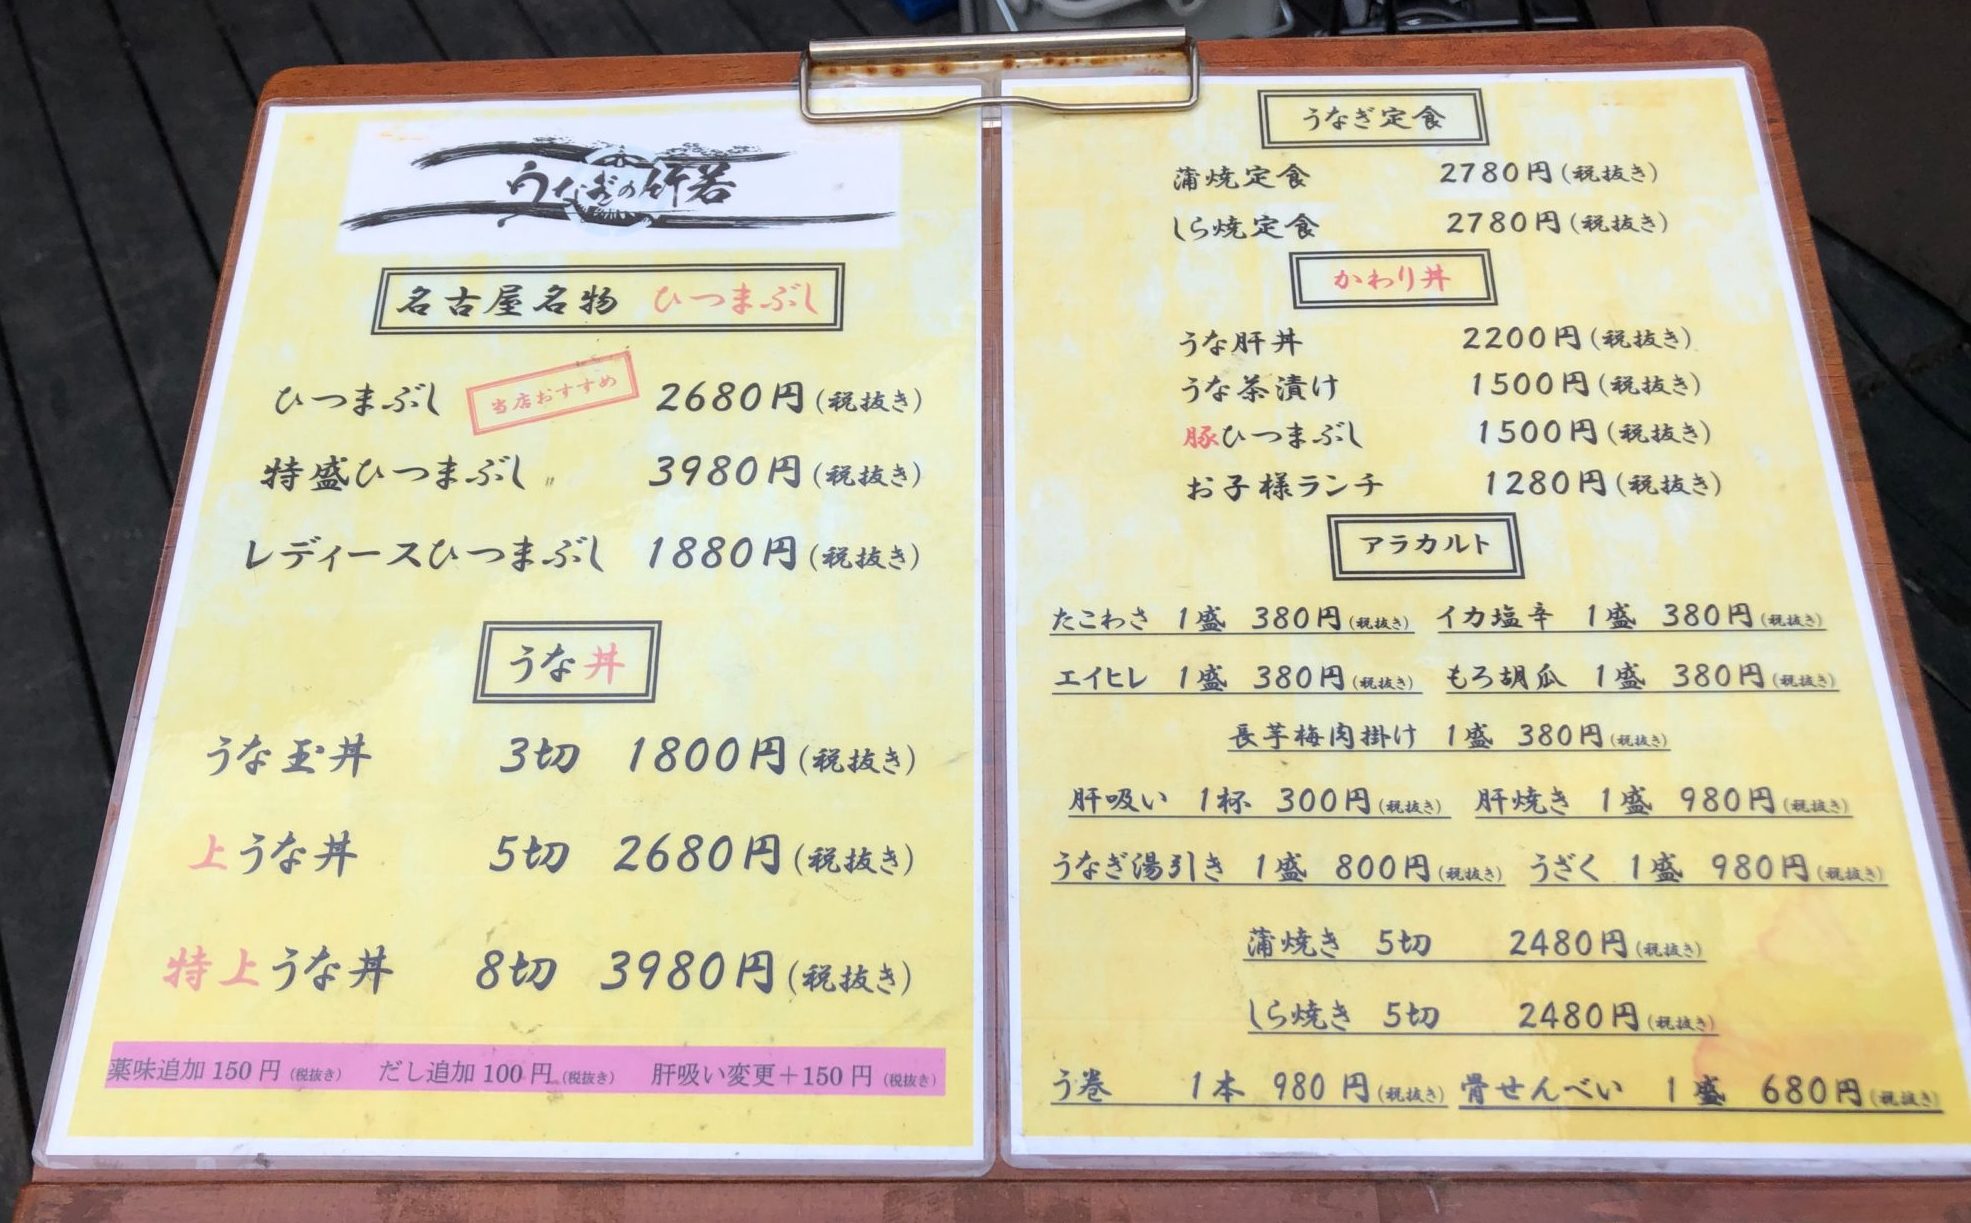 うなぎの肝若
名古屋名物 ひつまぶし
ひつまぶし 当店おすすめ 2680円(税抜き)
特盛ひつまぶし 3980円(税抜き)
レディースひつまぶし 1880円(税抜き)
うな丼
うな玉丼 3切 1800円(税抜き)
上うな丼 5切 2680円(税抜き)
特上うな丼 8切 3980円(税抜き)
薬味追加150円(税抜き) だし追加100円(税抜き) 肝吸い変更+150円(税抜き)
うなぎ定食
蒲焼定食 2780円(税抜き)
しら焼定食 2780円(税抜き)
かわり丼
うな肝丼 2200円(税抜き)
うな茶漬け 1500円(税抜き)
豚ひつまぶし 1500円(税抜き)
お子様ランチ 1280円(税抜き)
アラカルト
たこわさ 1盛 380円(税抜き) イカ塩辛 1盛 380円(税抜き)
エイヒレ 1盛 380円(税抜き) もろ胡瓜 1盛 380円(税抜き)
長芋梅肉掛け 1盛 380円(税抜き)
肝吸い 1杯 300円(税抜き) 肝焼き 1盛 980円(税抜き)
うなぎ湯引き 1盛 800円(税抜き) うざく 1盛 980円(税抜き)
蒲焼き 5切 2480円(税抜き)
しら焼き 5切 2480円(税抜き)
う巻 1本 980円(税抜き) 骨せんべい 1盛 680円(税抜き)